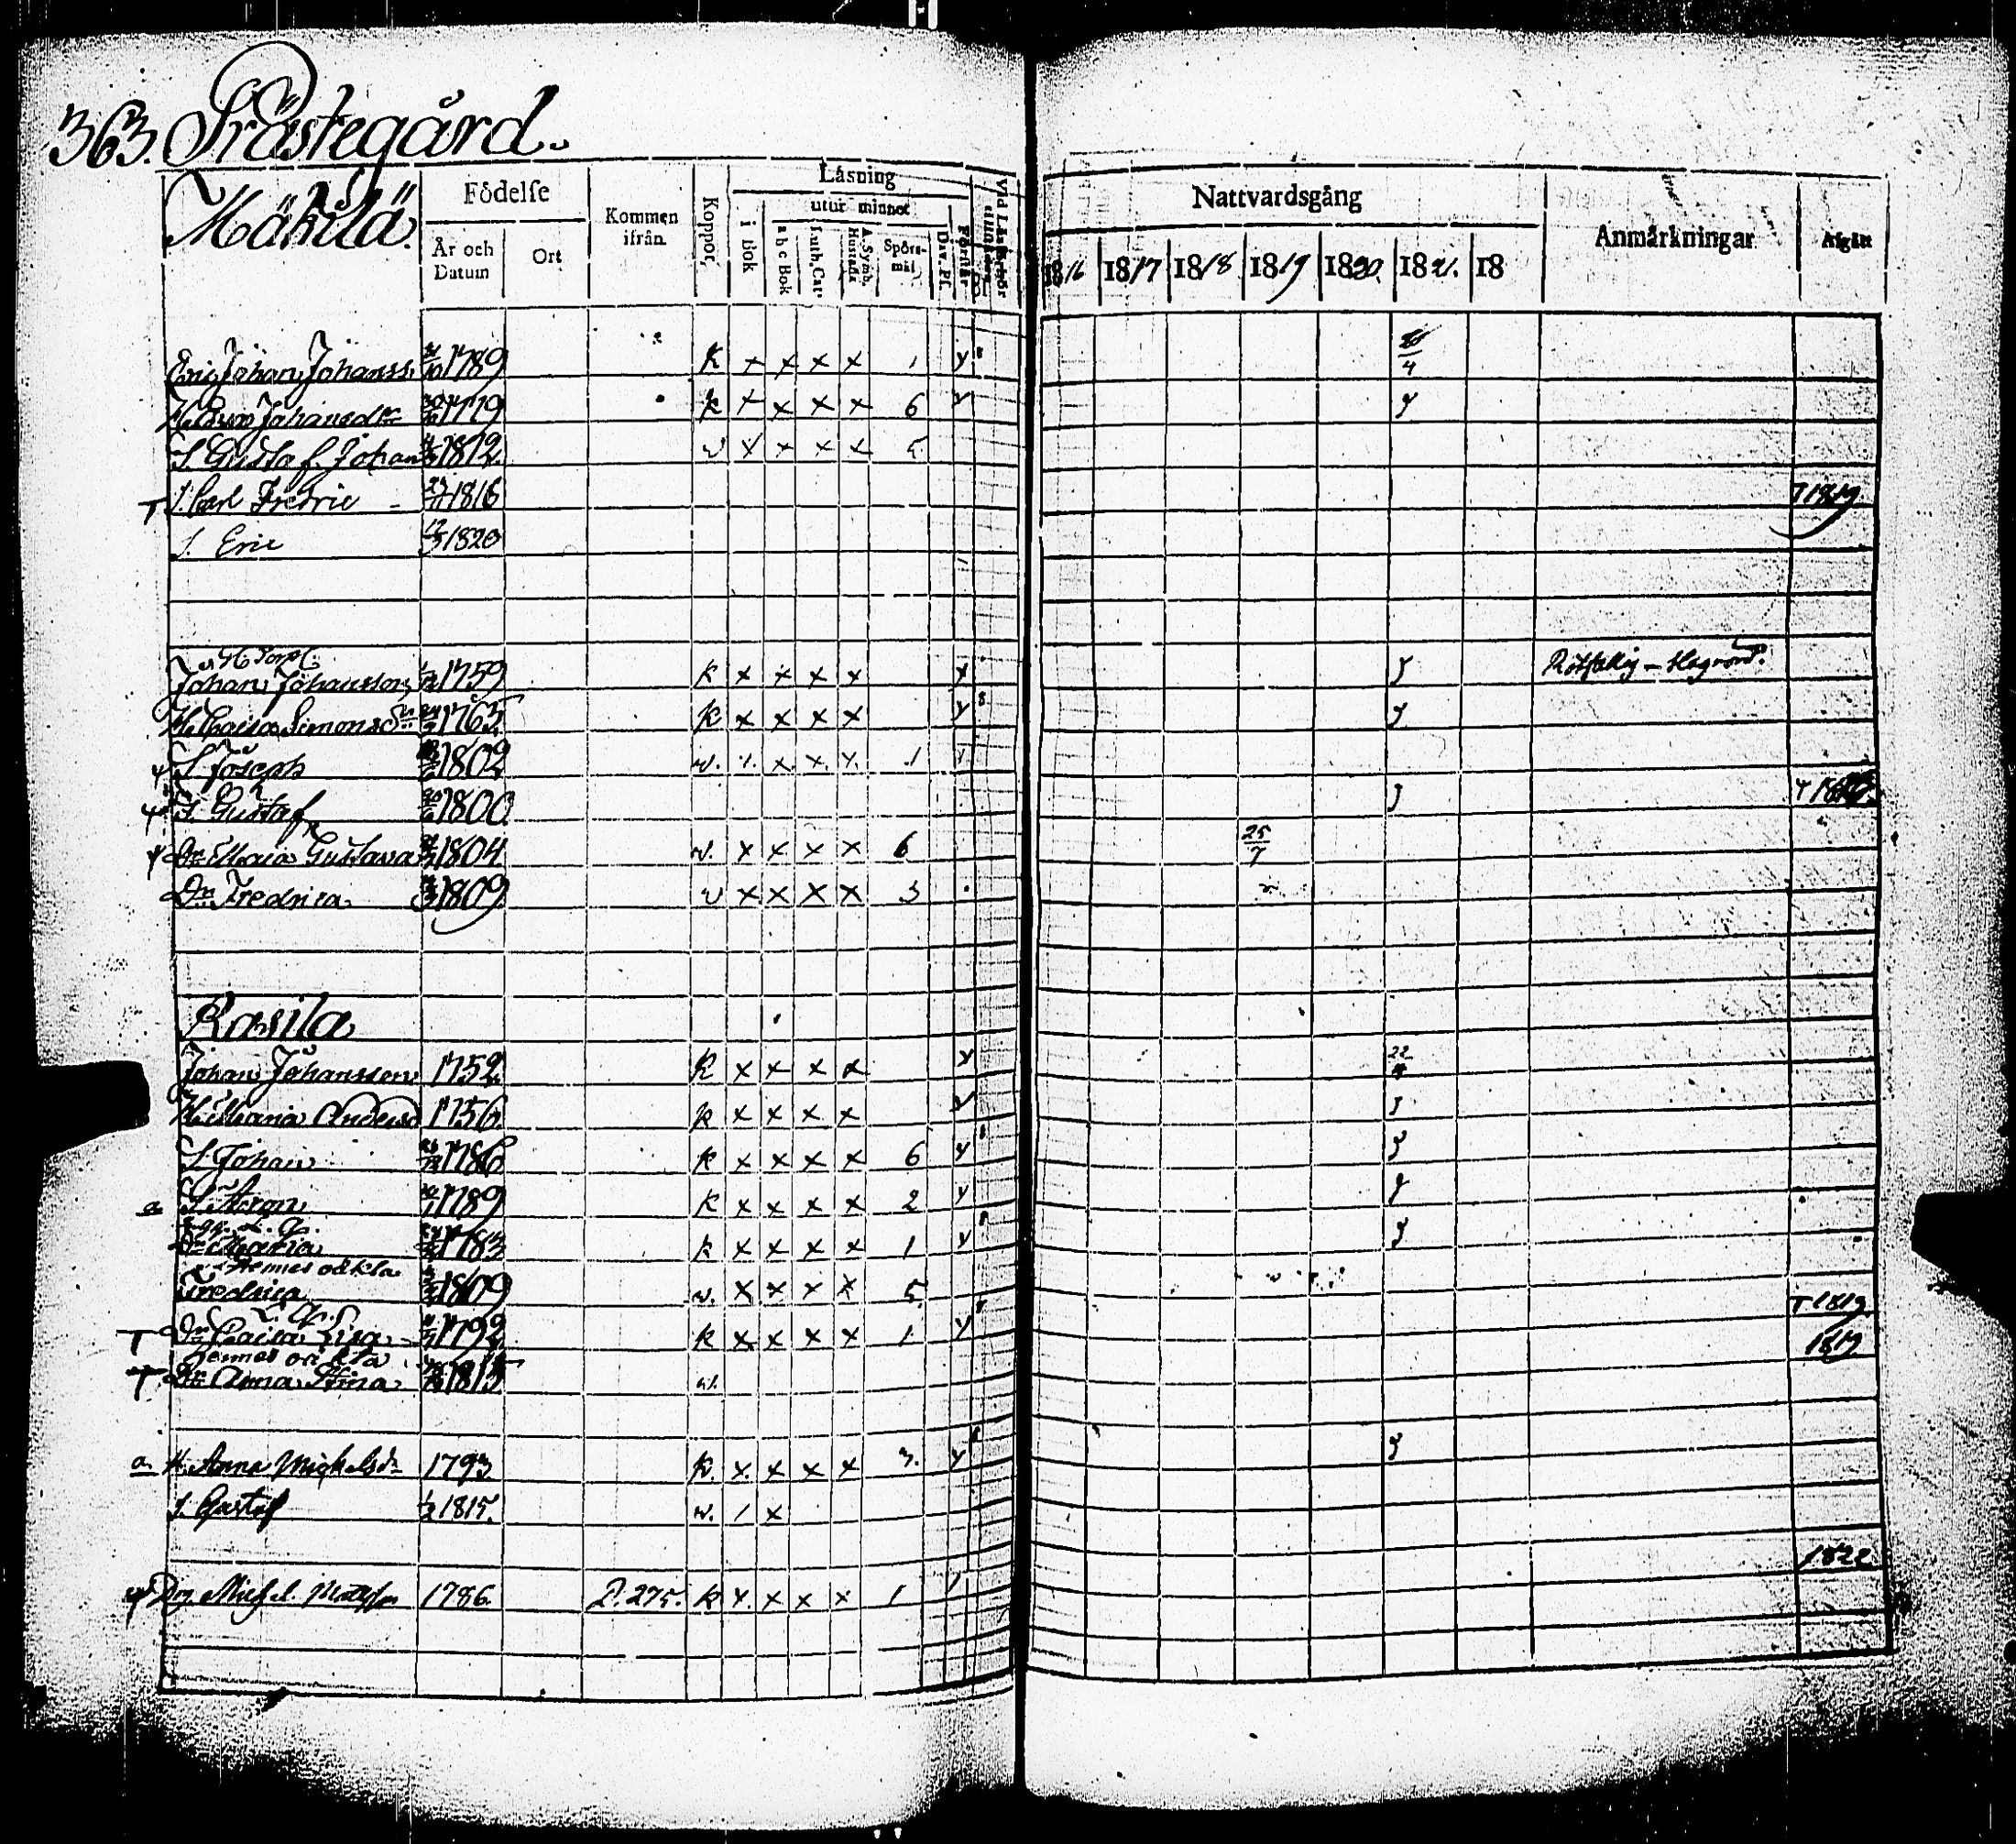 363. Prästegård.
Mäkilä.
Födelse
År och Datum
Ort
Kommen ifrån.
Koppor,
Läsning
i Bok
utur minnet
a b c Bok
Luth. Cat.
A. Symb. Hustafla
Spörsmål
Dav. Ps.
Förstår
Nattvardsgång
1816 1817 1818 1819 1820 1821. 18
Anmärkningar
Afgått
Eric Johan Johanss. 1789 k x x x x 1 y 4
Johansdr 1779 k x x x x 6 y
S. Gustaf Johan 1812. v x x x x 5
T S. Carl Fredric 1816 T 1819.
S. Eric 1820
Johan Johansson 1759 k x x x x y
H. Caisa Simonsdr 1765 k x x x x y
S. Joseph 1802 v. x x x 1
S. Gustaf 1800
Dr Maria Gustava 1804 v. x x x x 6 25/7
Dr Fredrica 1809 v x x x x 3
Rasila
Johan Johansson 1752 k x x x x y 22/4
H. Maria Andersd 1756 k x x x x y
S. Johan 1786 k x x x x 6 y
a S. Aron 1789 k x x x x 2 y
Dr Maria 1783 k x x x x 1 y
Hennes oäkta
Fredrica 1809 v. x x x x 5. T 1819
T Dr Caisa Lisa 1792 k x x x x 1 y 1819
Hennes oäkta
T Dr Anna Stina 1815 v.
a. H. Anna Mickelsdr 1793 k. x x x x 3. y
S. Gustaf 1815. v. / x
Drg. Michel Matsson 1786. P. 275. k x. x x x 1 1822